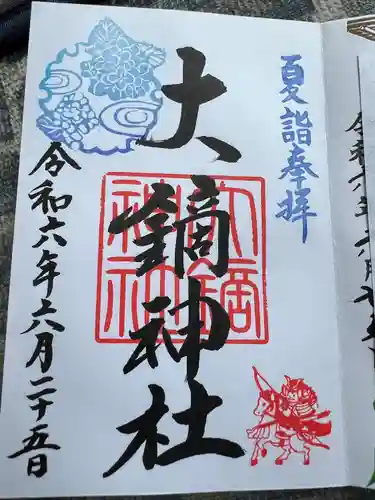 夏詣奉拝
大鏑神社
大鏑
神社
令和六年六月二十五日
令和六年六月